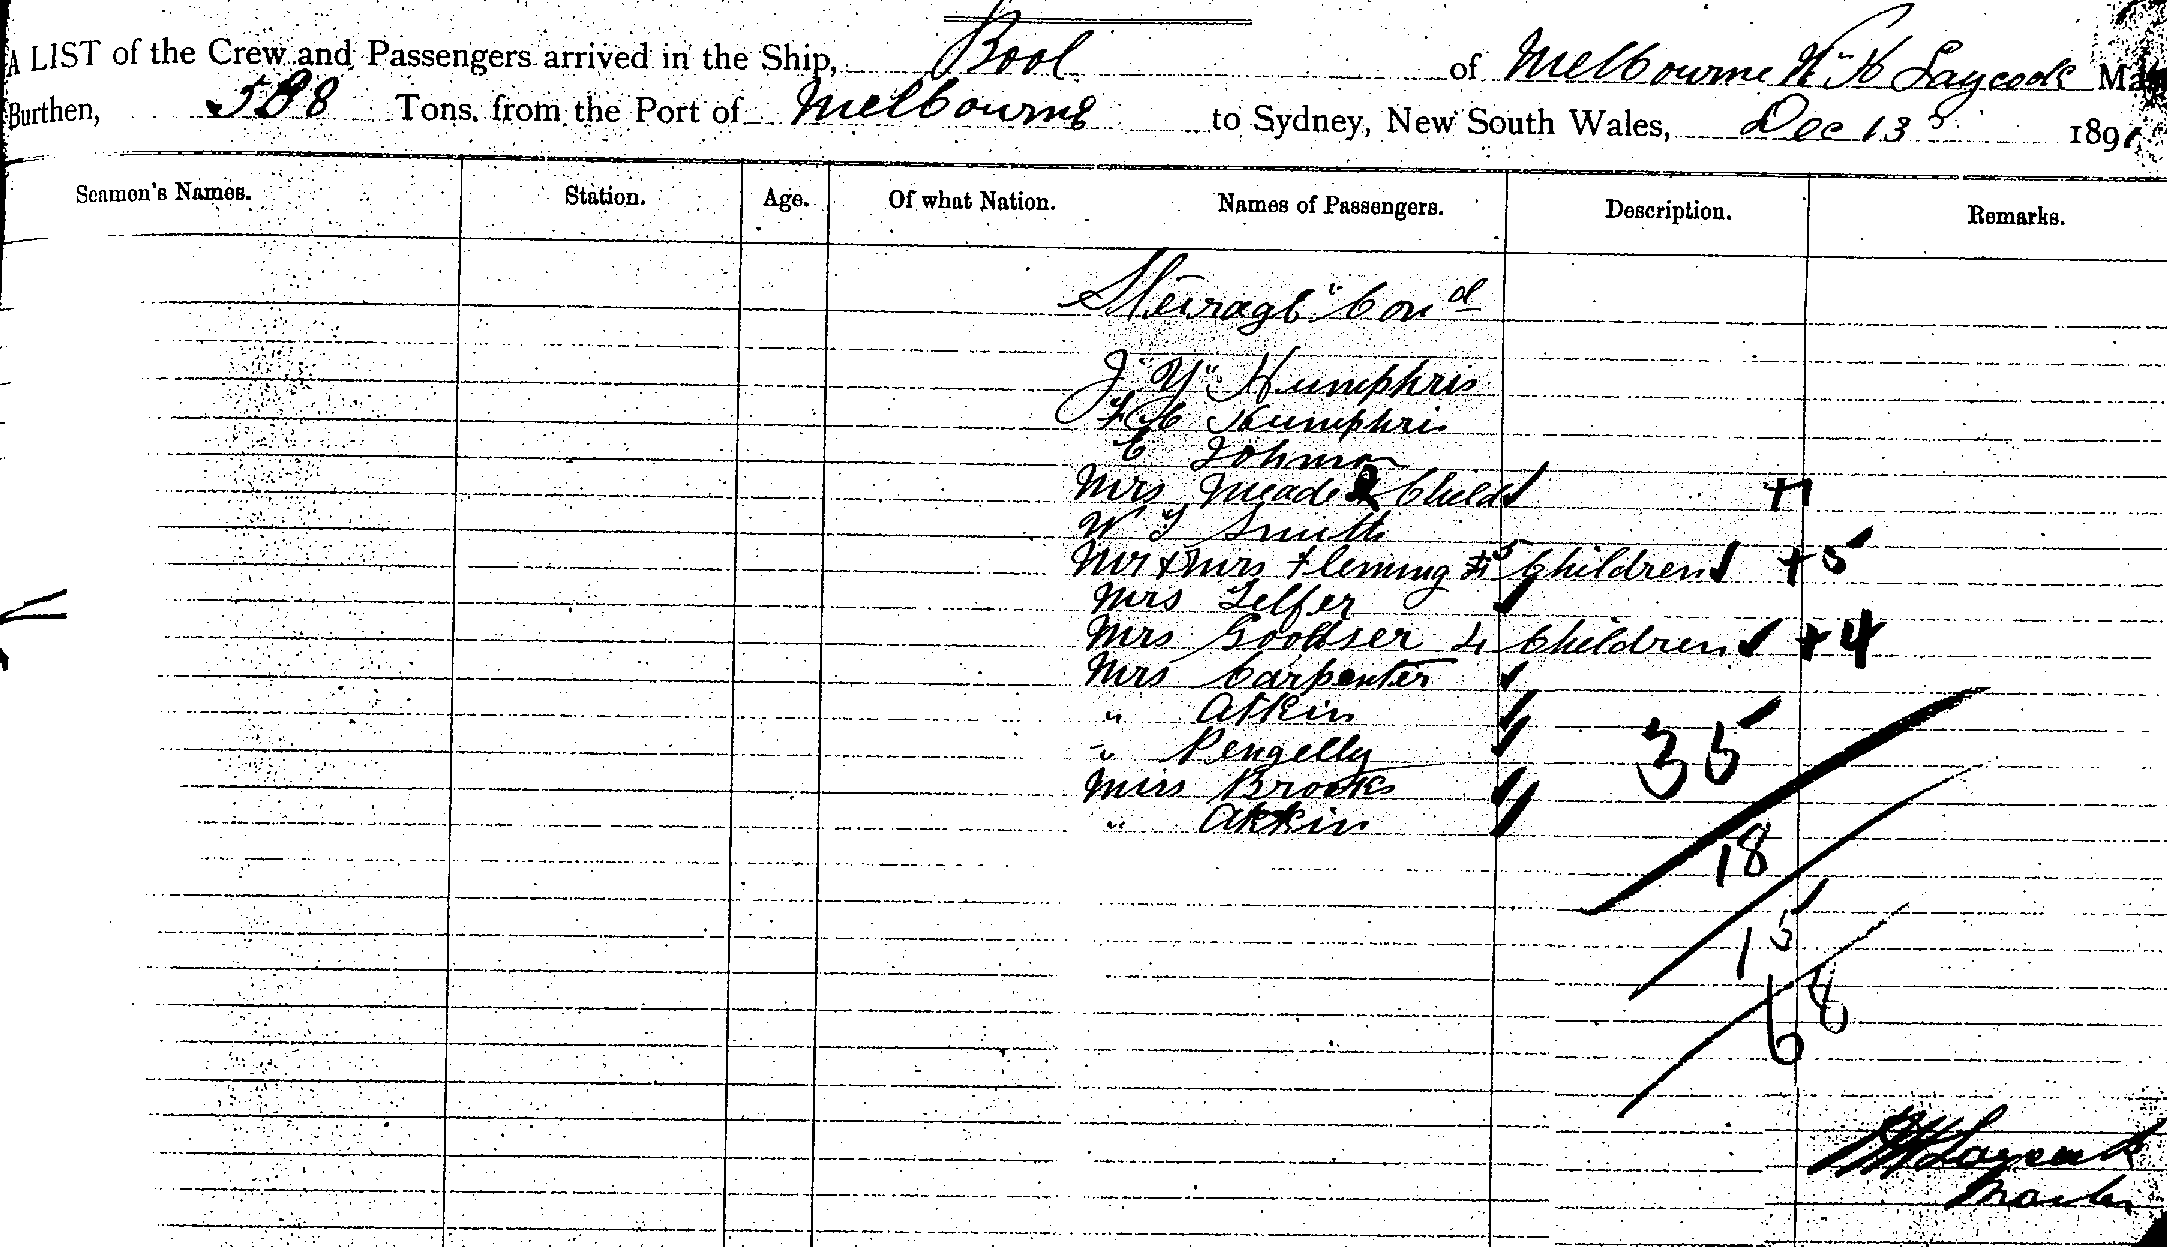 A LIST of the Crew and Passengers arrived in the Ship, Bool of Melbourne W. H Laycock
Burthen, 598 Tons, from the Port of Melbourne to Sydney, New South Wales, Dec 13 189
Seamen's Names. Station. Age. Of what Nation. Names of Passengers. Description. Remarks.
Steirage Cond
J Y Humphris
Humphris
C Johnson
Mrs Meade & Child
W T Smith
Mr & Mrs Fleming 5 Children +5
Mrs Telfer
Mrs 4 Children +4
Mrs Carpenter
" Atkin
" Pengelly
35
Miss Brooks
" Atkin
18
15
68
W H Laycock
Master